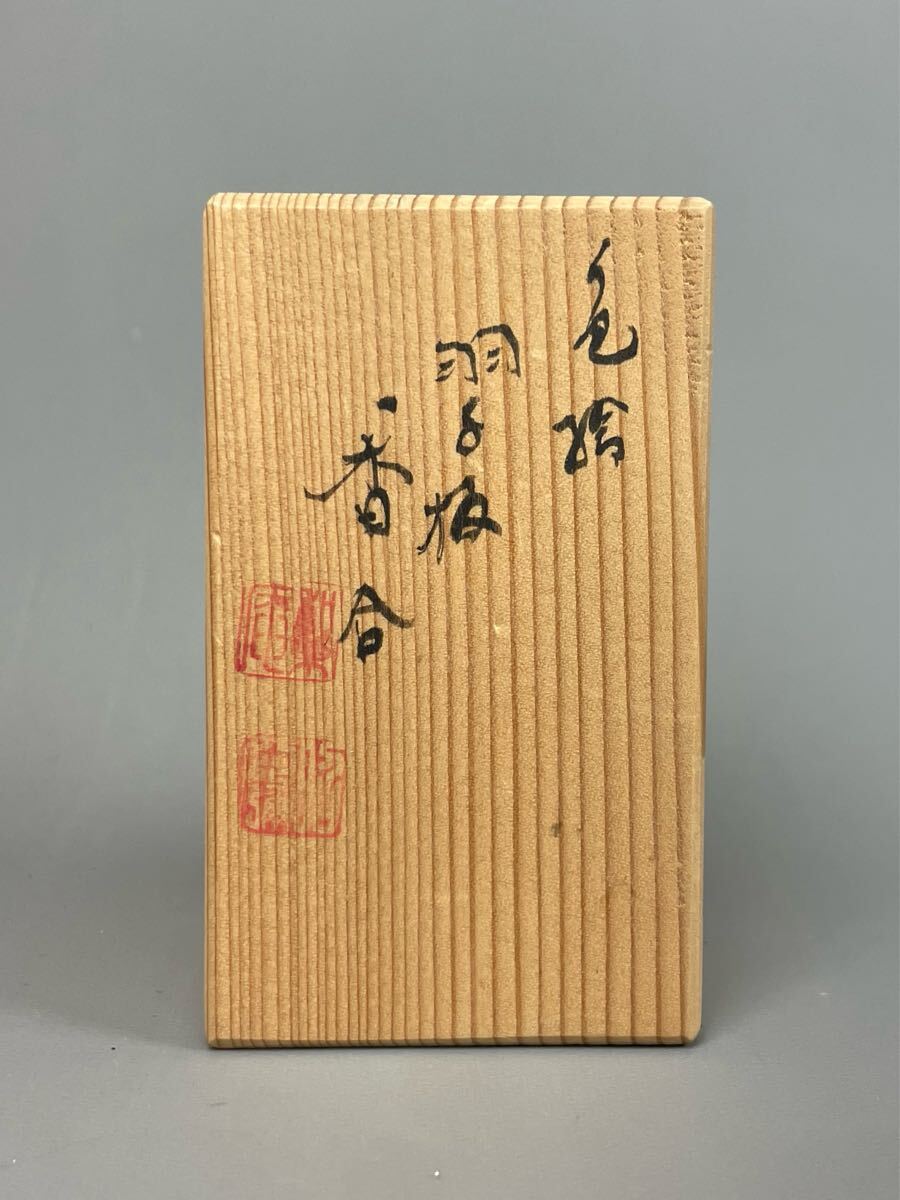 色絵
羽子板
香合